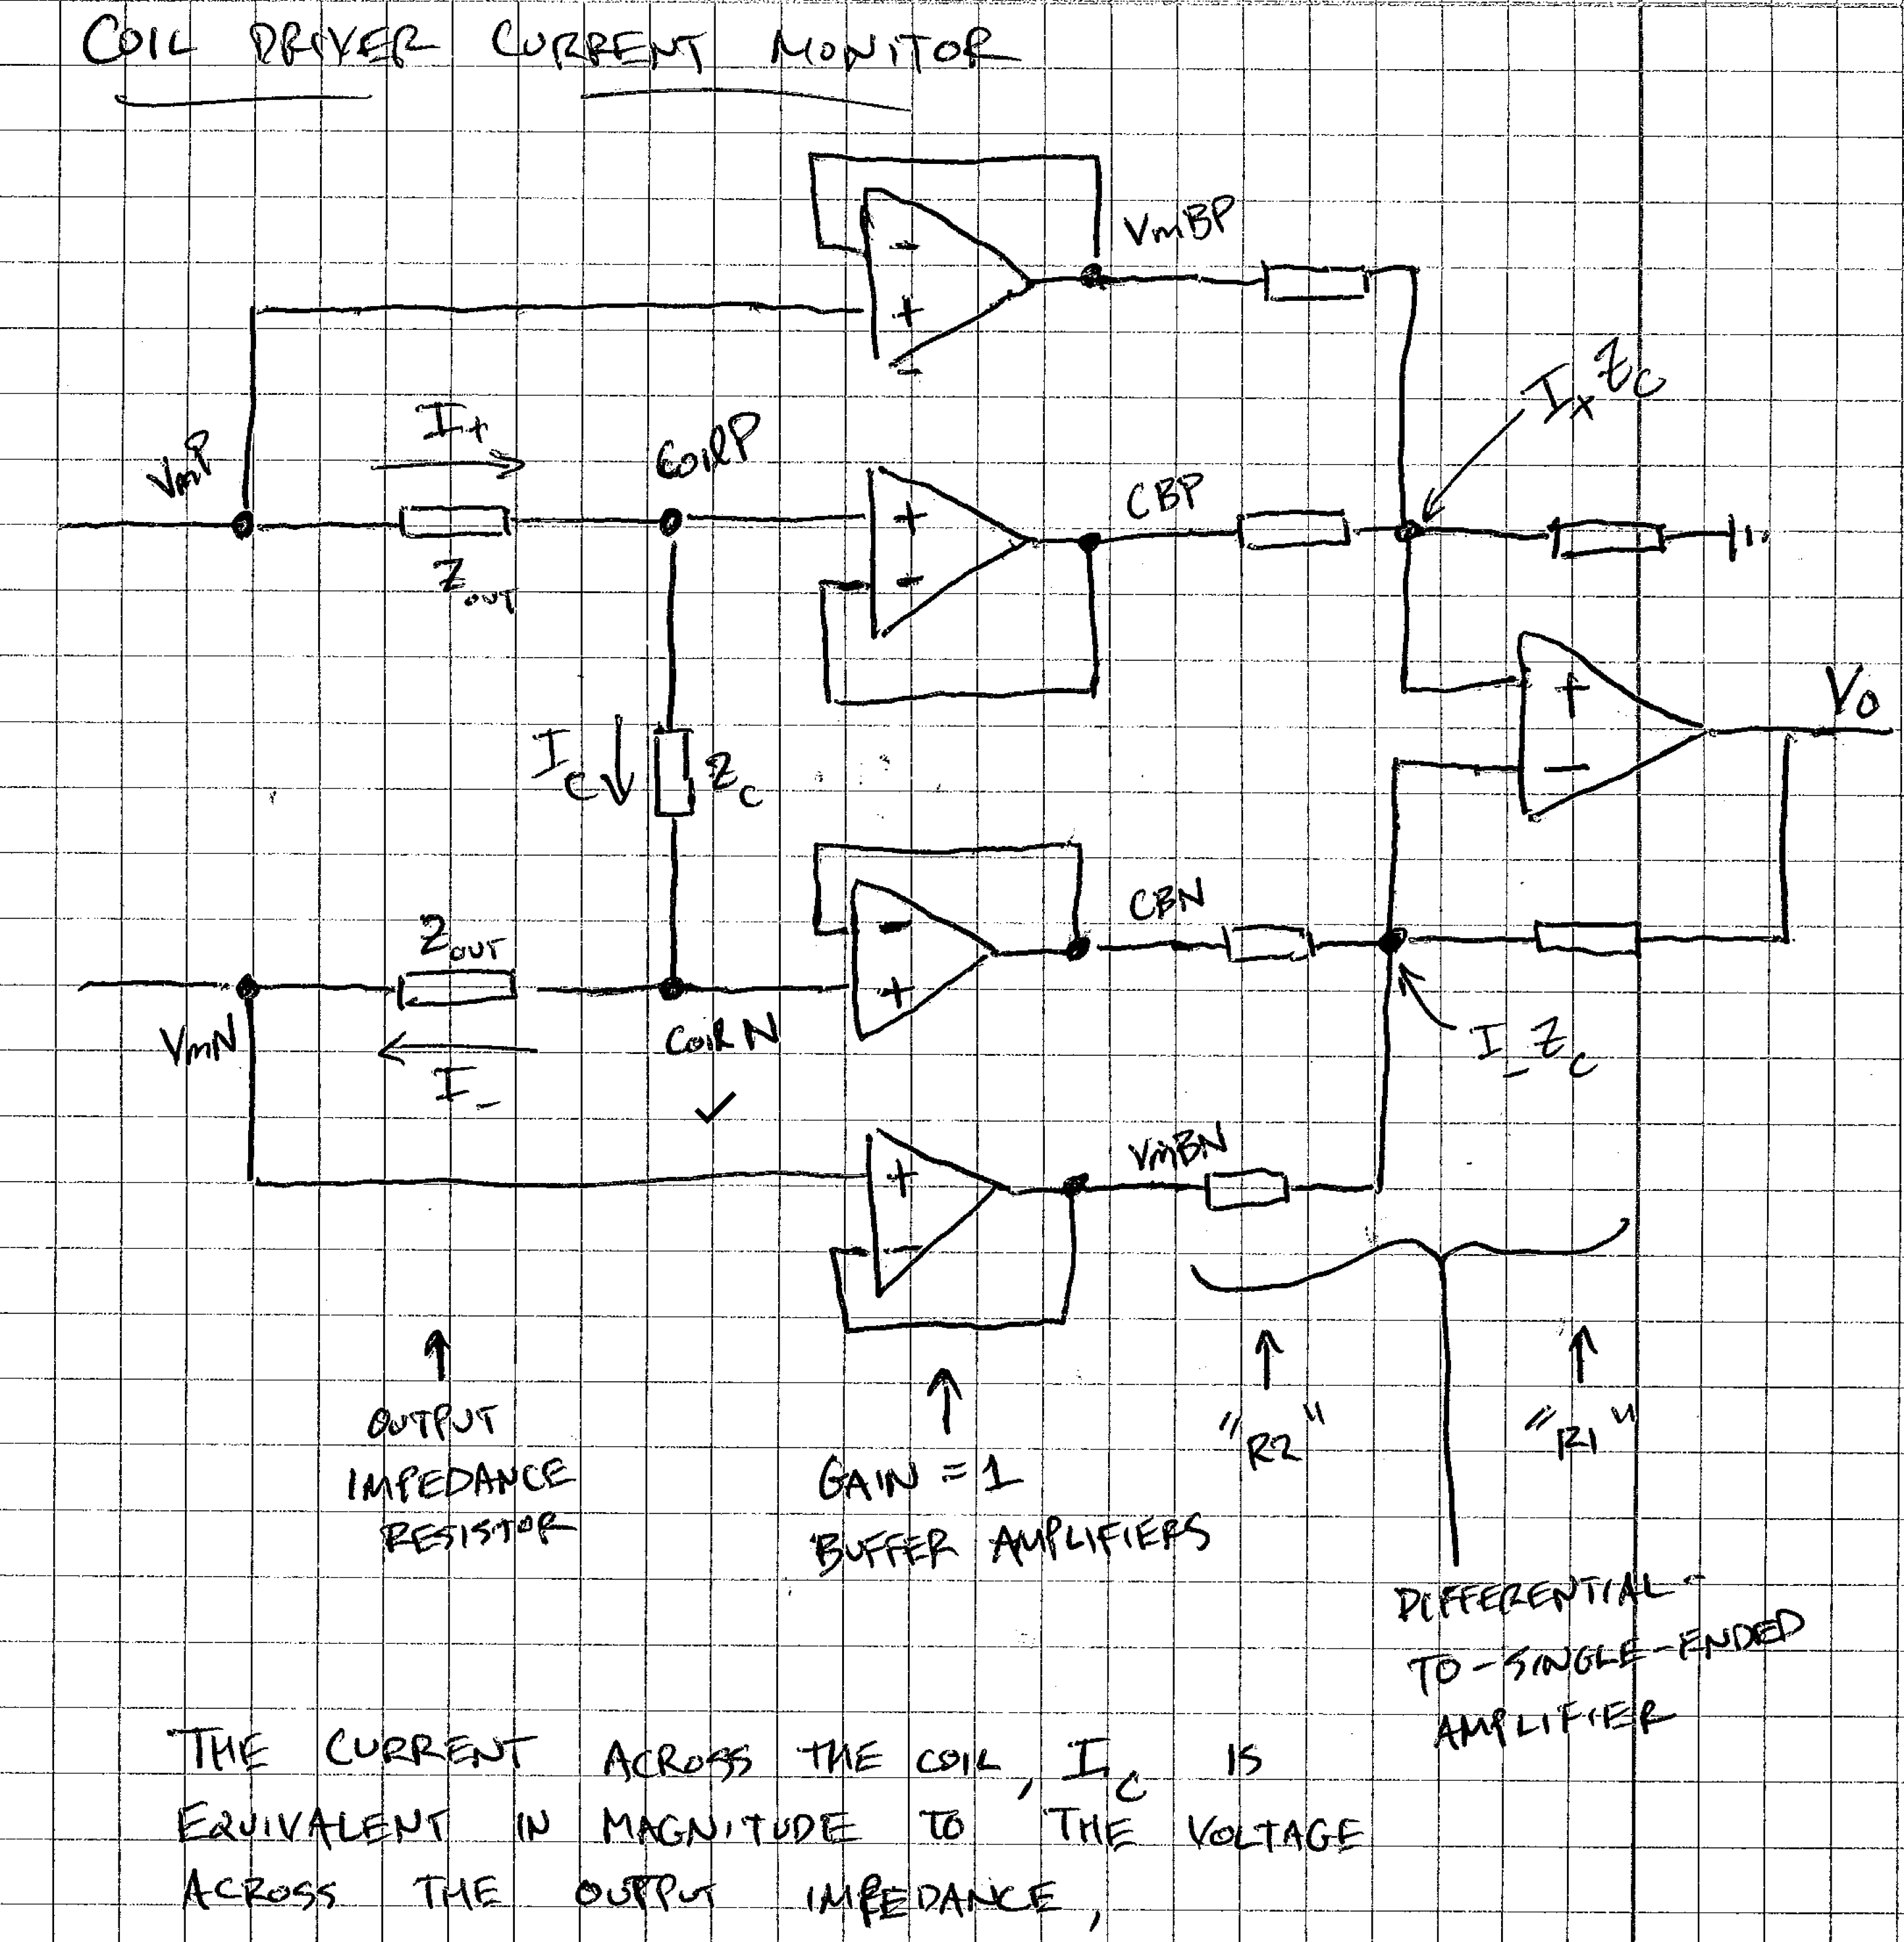 COIL DRIVER CURRENT MONITOR
VmBP
I+
VmP
CoilP
CBP
IxZc
ZOUT
Vo
Ic
Zc
ZOUT
CBN
VmN
CoilN
I-Zc
I-
VmBN
OUTPUT
IMPEDANCE
RESISTOR
GAIN = 1
BUFFER AMPLIFIERS
"R2"
"R1"
DIFFERENTIAL-
TO-SINGLE-ENDED
AMPLIFIER
THE CURRENT ACROSS THE COIL, Ic IS
EQUIVALENT IN MAGNITUDE TO THE VOLTAGE
ACROSS THE OUTPUT IMPEDANCE,